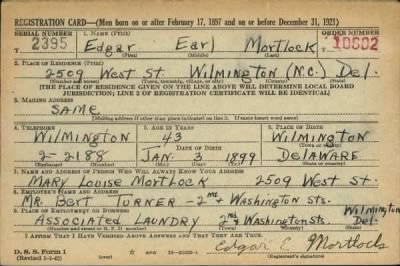 REGISTRATION CARD—(Men born on or after February 17, 1897 and on or before December 31, 1921)
SERIAL NUMBER 1. NAME (Print) ORDER NUMBER
T 2395 Edgar Earl Mortlock 10602
(First) (Middle) (Last)
2. PLACE OF RESIDENCE (Print)
2509 West St. Wilmington (N.C.) Del.
(Number and street) (Town, township, village, or city) (County) (State)
[THE PLACE OF RESIDENCE GIVEN ON THE LINE ABOVE WILL DETERMINE LOCAL BOARD
JURISDICTION; LINE 2 OF REGISTRATION CERTIFICATE WILL BE IDENTICAL]
3. MAILING ADDRESS
SAME
[Mailing address if other than place indicated on line 2. If same insert word same]
4. TELEPHONE 5. AGE IN YEARS 6. PLACE OF BIRTH
Wilmington 43 Wilmington
DATE OF BIRTH (Town or county)
2-2188 JAN. 3 1899 Delaware
(Exchange) (Number) (Mo.) (Day) (Yr.) (State or country)
7. NAME AND ADDRESS OF PERSON WHO WILL ALWAYS KNOW YOUR ADDRESS
Mary Louise Mortlock 2509 West St.
8. EMPLOYER'S NAME AND ADDRESS
Mr. Bert Turner - 2nd & Washington Sts
9. PLACE OF EMPLOYMENT OR BUSINESS Wilmington
Associated Laundry 2nd & Washington Sts. Del.
(Number and street or R. F. D. number) (Town) (County) (State)
I AFFIRM THAT I HAVE VERIFIED ABOVE ANSWERS AND THAT THEY ARE TRUE.
D. S. S. Form 1 Edgar E Mortlock
(Revised 1-1-42) (over) (Registrant's signature)